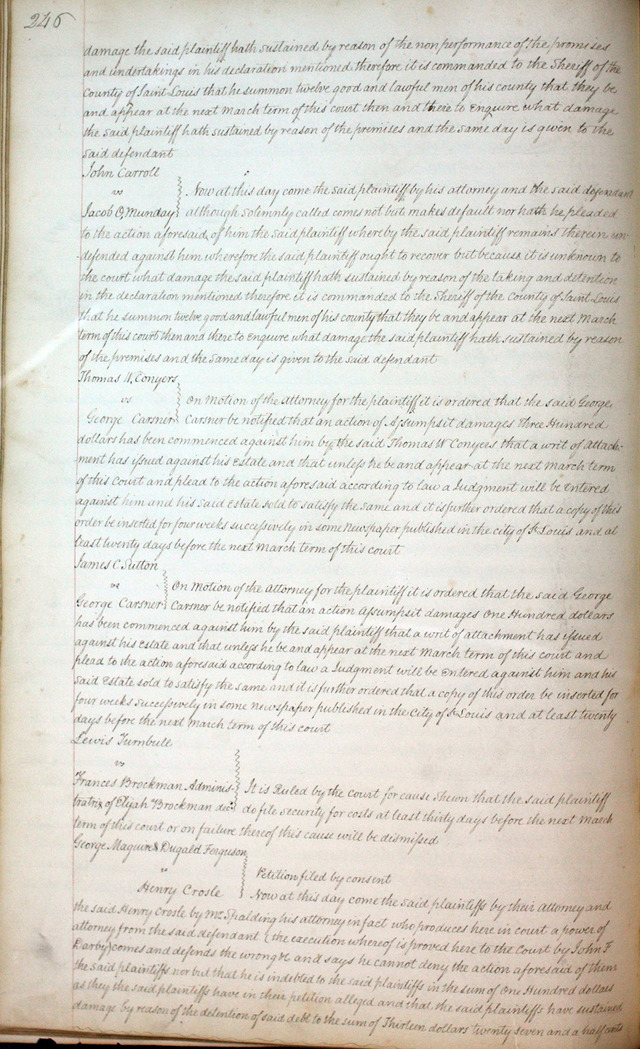 246
damage the said plaintiff hath sustained by reason of the non performance of the promises
and undertakings in his declaration mentioned therefore it is commanded to the Sheriff of the
County of Saint Louis that he summon twelve good and lawful men of his county that they be
and appear at the next March term of this court then and there to Enquire what damage
the said plaintiff hath sustained by reason of the premises and the same day is given to the
said defendant
John Carroll
vs Now at this day come the said plaintiff by his attorney and the said defendant
Jacob O, Munday although solemnly called comes not but makes default nor hath he pleaded
to the action aforesaid of him the said plaintiff whereby the said plaintiff remains therein un-
defended against him wherefore the said plaintiff ought to recover but because it is unknown to
the court what damage the said plaintiff hath sustained by reason of the taking and detention
in the declaration mentioned therefore it is commanded to the Sheriff of the County of Saint Louis
that he summon twelve good and lawful men of his county that they be and appear at the next March
term of this court then and there to enquire what damage the said plaintiff hath sustained by reason
of the premises and the same day is given to the said defendant
Thomas W, Conyers
vs On motion of the attorney for the plaintiff it is ordered that the said George
George Carsner Carsner be notified that an action of Assumpsit damages three Hundred
dollars has been commenced against him by the said Thomas W Conyers that a writ of attach-
ment has issued against his Estate and that unless he be and appear at the next March term
of this Court and plead to the action aforesaid according to law a Judgment will be Entered
against him and his said Estate sold to satisfy the same and it is further ordered that a copy of this
order be inserted for four weeks successively in some Newspaper published in the city of St Louis and at
least twenty days before the next March term of this court
James C Sutton
vs On motion of the Attorney for the plaintiff it is ordered that the said George
George Carsner Carsner be notified that an action Assumpsit damages One Hundred dollars
has been commenced against him by the said plaintiff that a writ of attachment has issued
against his Estate and that unless he be and appear at the next March term of this court and
plead to the action aforesaid according to law a Judgment will be Entered against him and his
said Estate sold to satisfy the same and it is further ordered that a copy of this order be inserted for
four weeks successively in some newspaper published in the City of St Louis and at least twenty
days before the next March term of this court
Lewis Turnbull
vs
Frances Brockman Adminis- It is Ruled by the Court for cause shewn that the said plaintiff
tratrix of Elijah Brockman decd do file security for costs at least thirty days before the next March
term of this court or on failure thereof this cause will be dismissed
George Maguire & Dugald Ferguson
vs Petition filed by consent
Henry Crosle Now at this day come the said plaintiffs by their Attorney and
the said Henry Crosle by Mr Spalding his attorney in fact who produces here in court a power of
attorney from the said defendant (the execution whereof is proved here to the Court by John F
Darby) comes and defends the wrong &c and says he cannot deny the action aforesaid of them
the said plaintiffs nor but that he is indebted to the said plaintiffs in the sum of One Hundred dollars
as they the said plaintiffs have in their petition alleged and that the said plaintiffs have sustained
damage by reason of the detention of said debt to the sum of Thirteen dollars twenty seven and a half cents